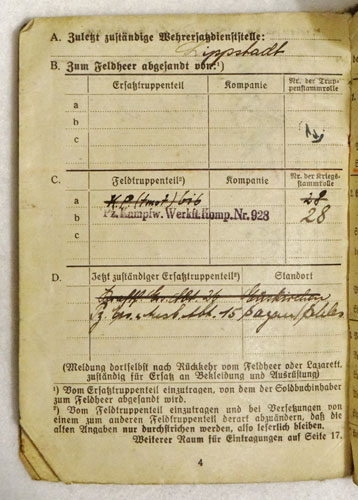 A. Zuletzt zuständige Wehrersatzdienststelle:
Lippstadt
B. Zum Feldheer abgesandt von:¹)
Ersatztruppenteil Kompanie Nr. der Trup-
penstammrolle
a
b
c
C. Feldtruppenteil²) Kompanie Nr. der Kriegs-
stammrolle
a 28
b Pz. Kampfw. Werkst. Komp. Nr. 928 28
c
D. Jetzt zuständiger Ersatztruppenteil²) Standort
(Meldung dortselbst nach Rückkehr vom Feldheer oder Lazarett,
zuständig für Ersatz an Bekleidung und Ausrüstung)
¹) Vom Ersatztruppenteil einzutragen, von dem der Soldbuchinhaber
zum Feldheer abgesandt wird.
²) Vom Feldtruppenteil einzutragen und bei Versetzungen von
einem zum anderen Feldtruppenteil derart abzuändern, daß die
alten Angaben nur durchstrichen werden, also leserlich bleiben.
Weiterer Raum für Eintragungen auf Seite 17.
4